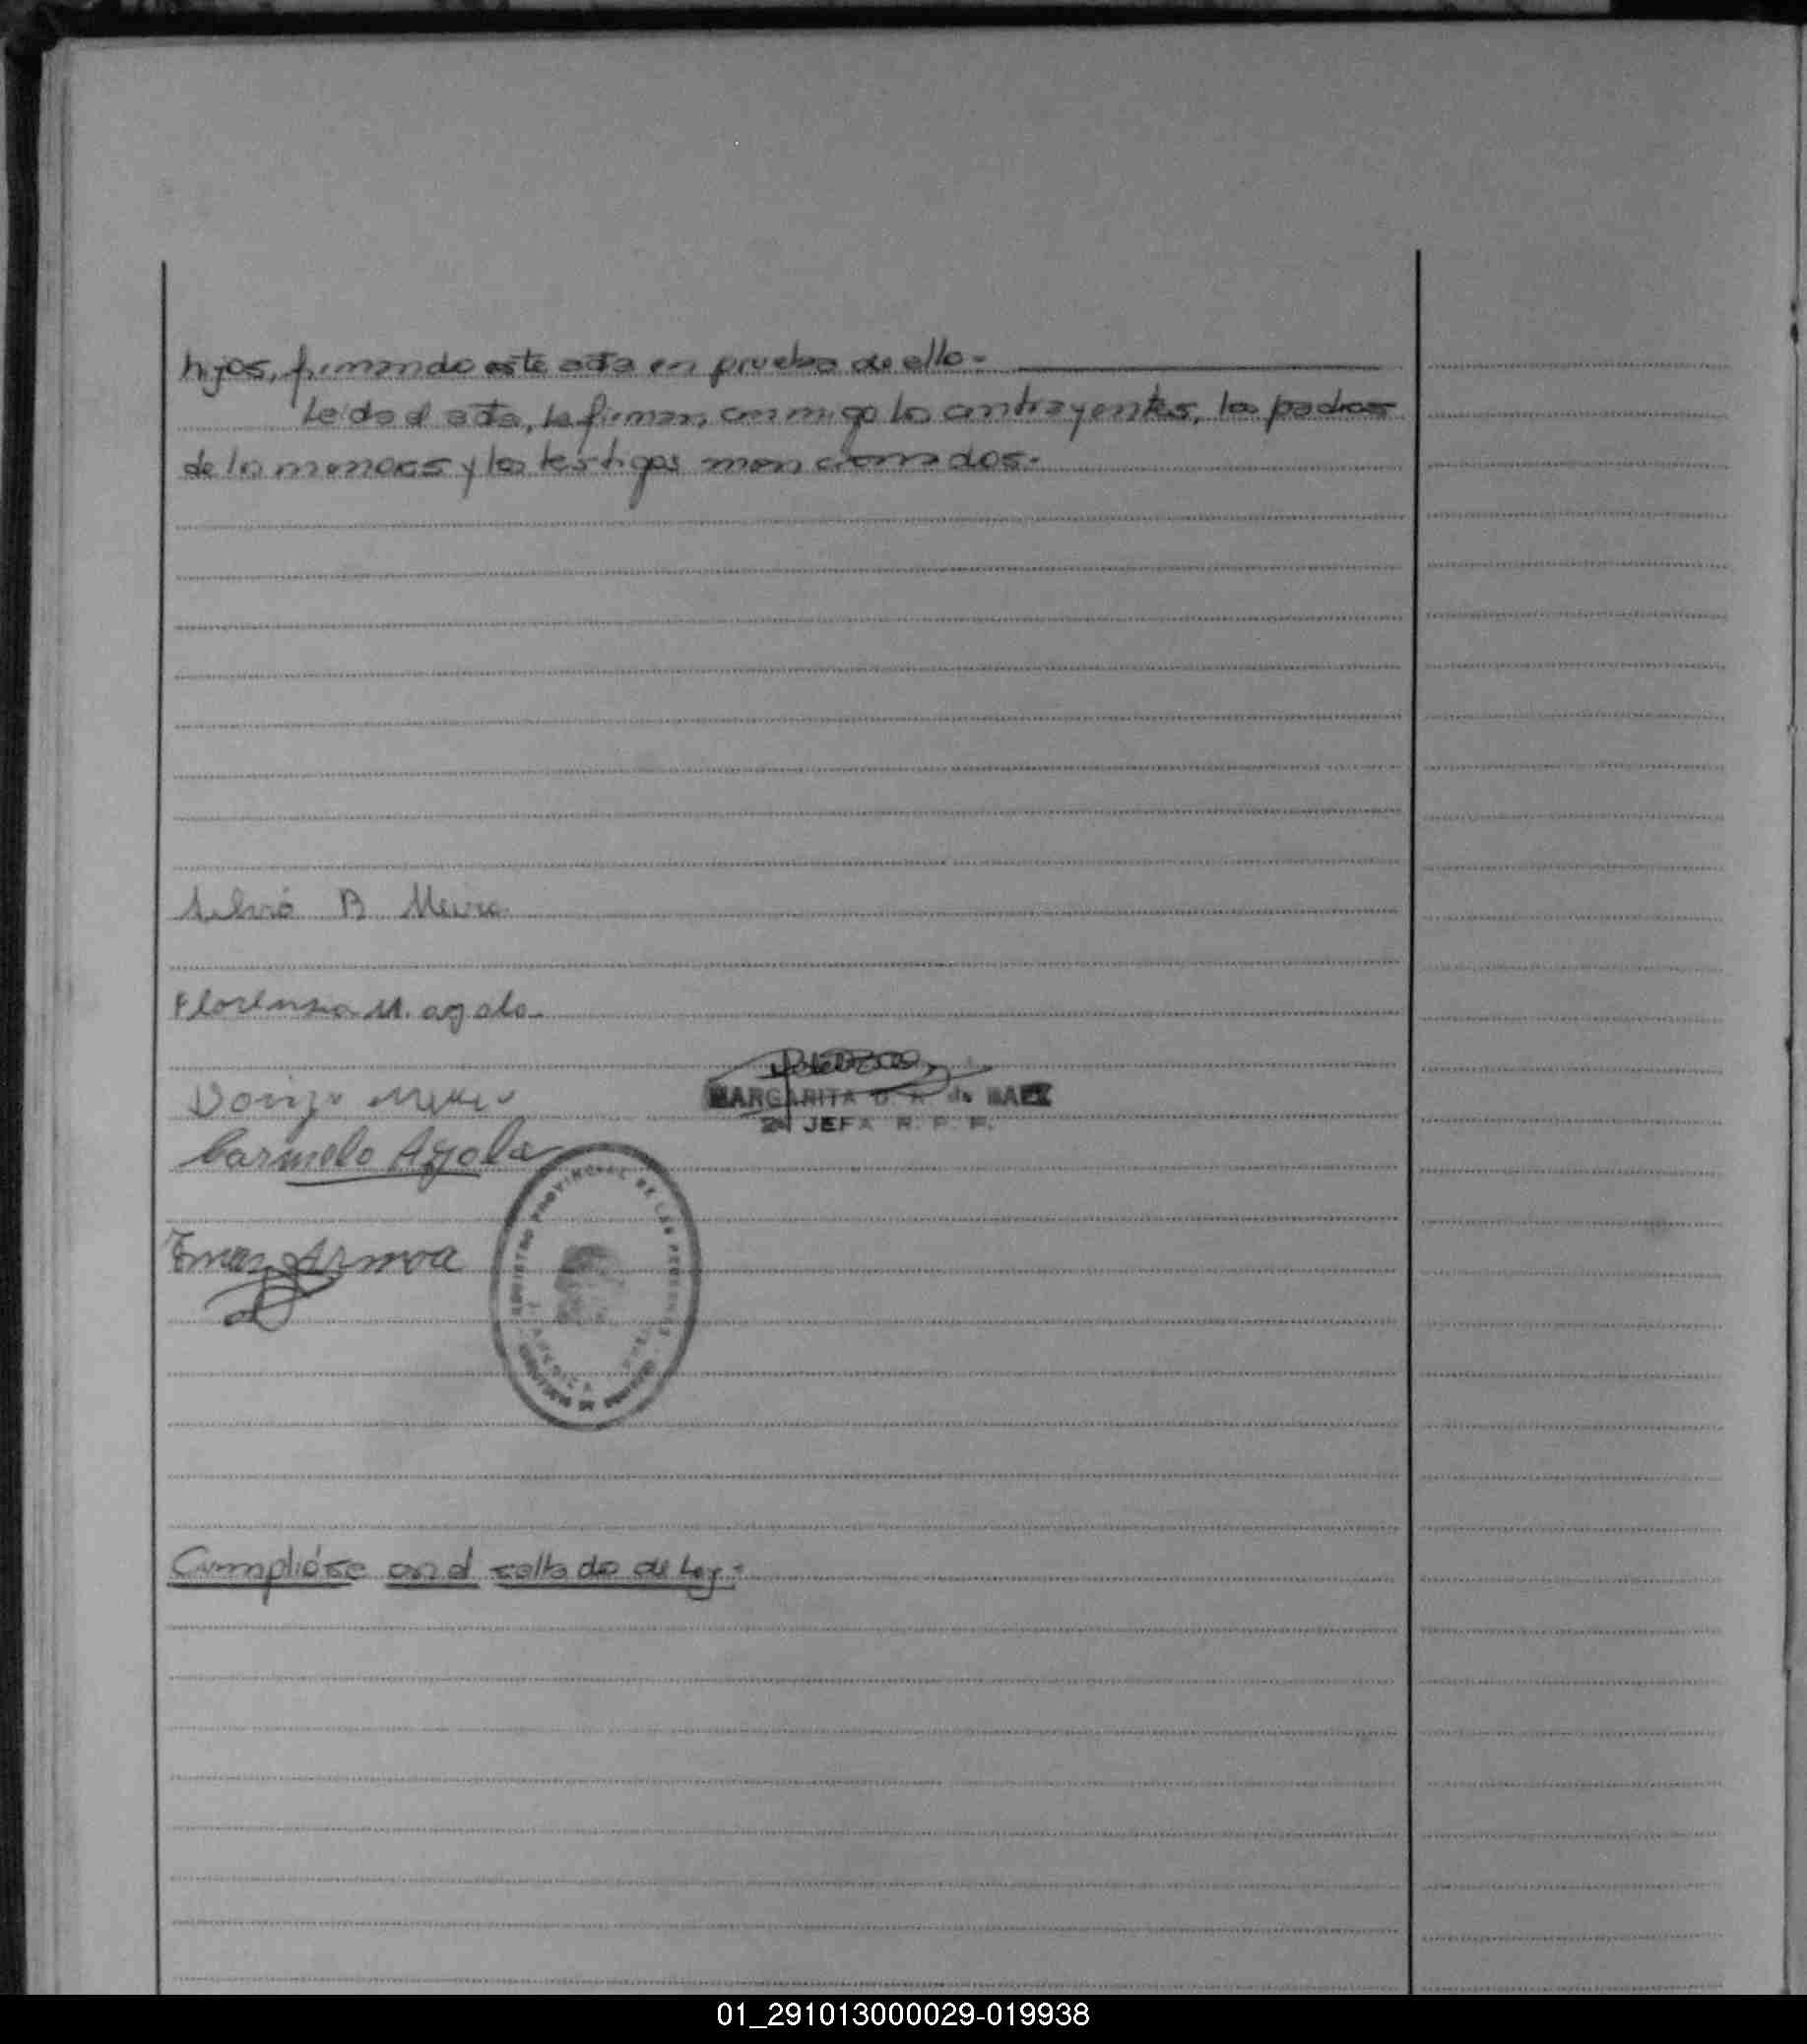 hijos, firmando este acta en prueba de ello.-
Leída el acta, la firman, conmigo los contrayentes, los padres
de los menores y los testigos mencionados.-
B
Florensia M. ayala
MARGARITA de BAEZ
2ª JEFA R. P. P.
Carmelo Ayala
REGISTRO PROVINCIAL DE LAS PERSONAS
Armoa
Cumplióse con el sellado de Ley.-
01_291013000029-019938